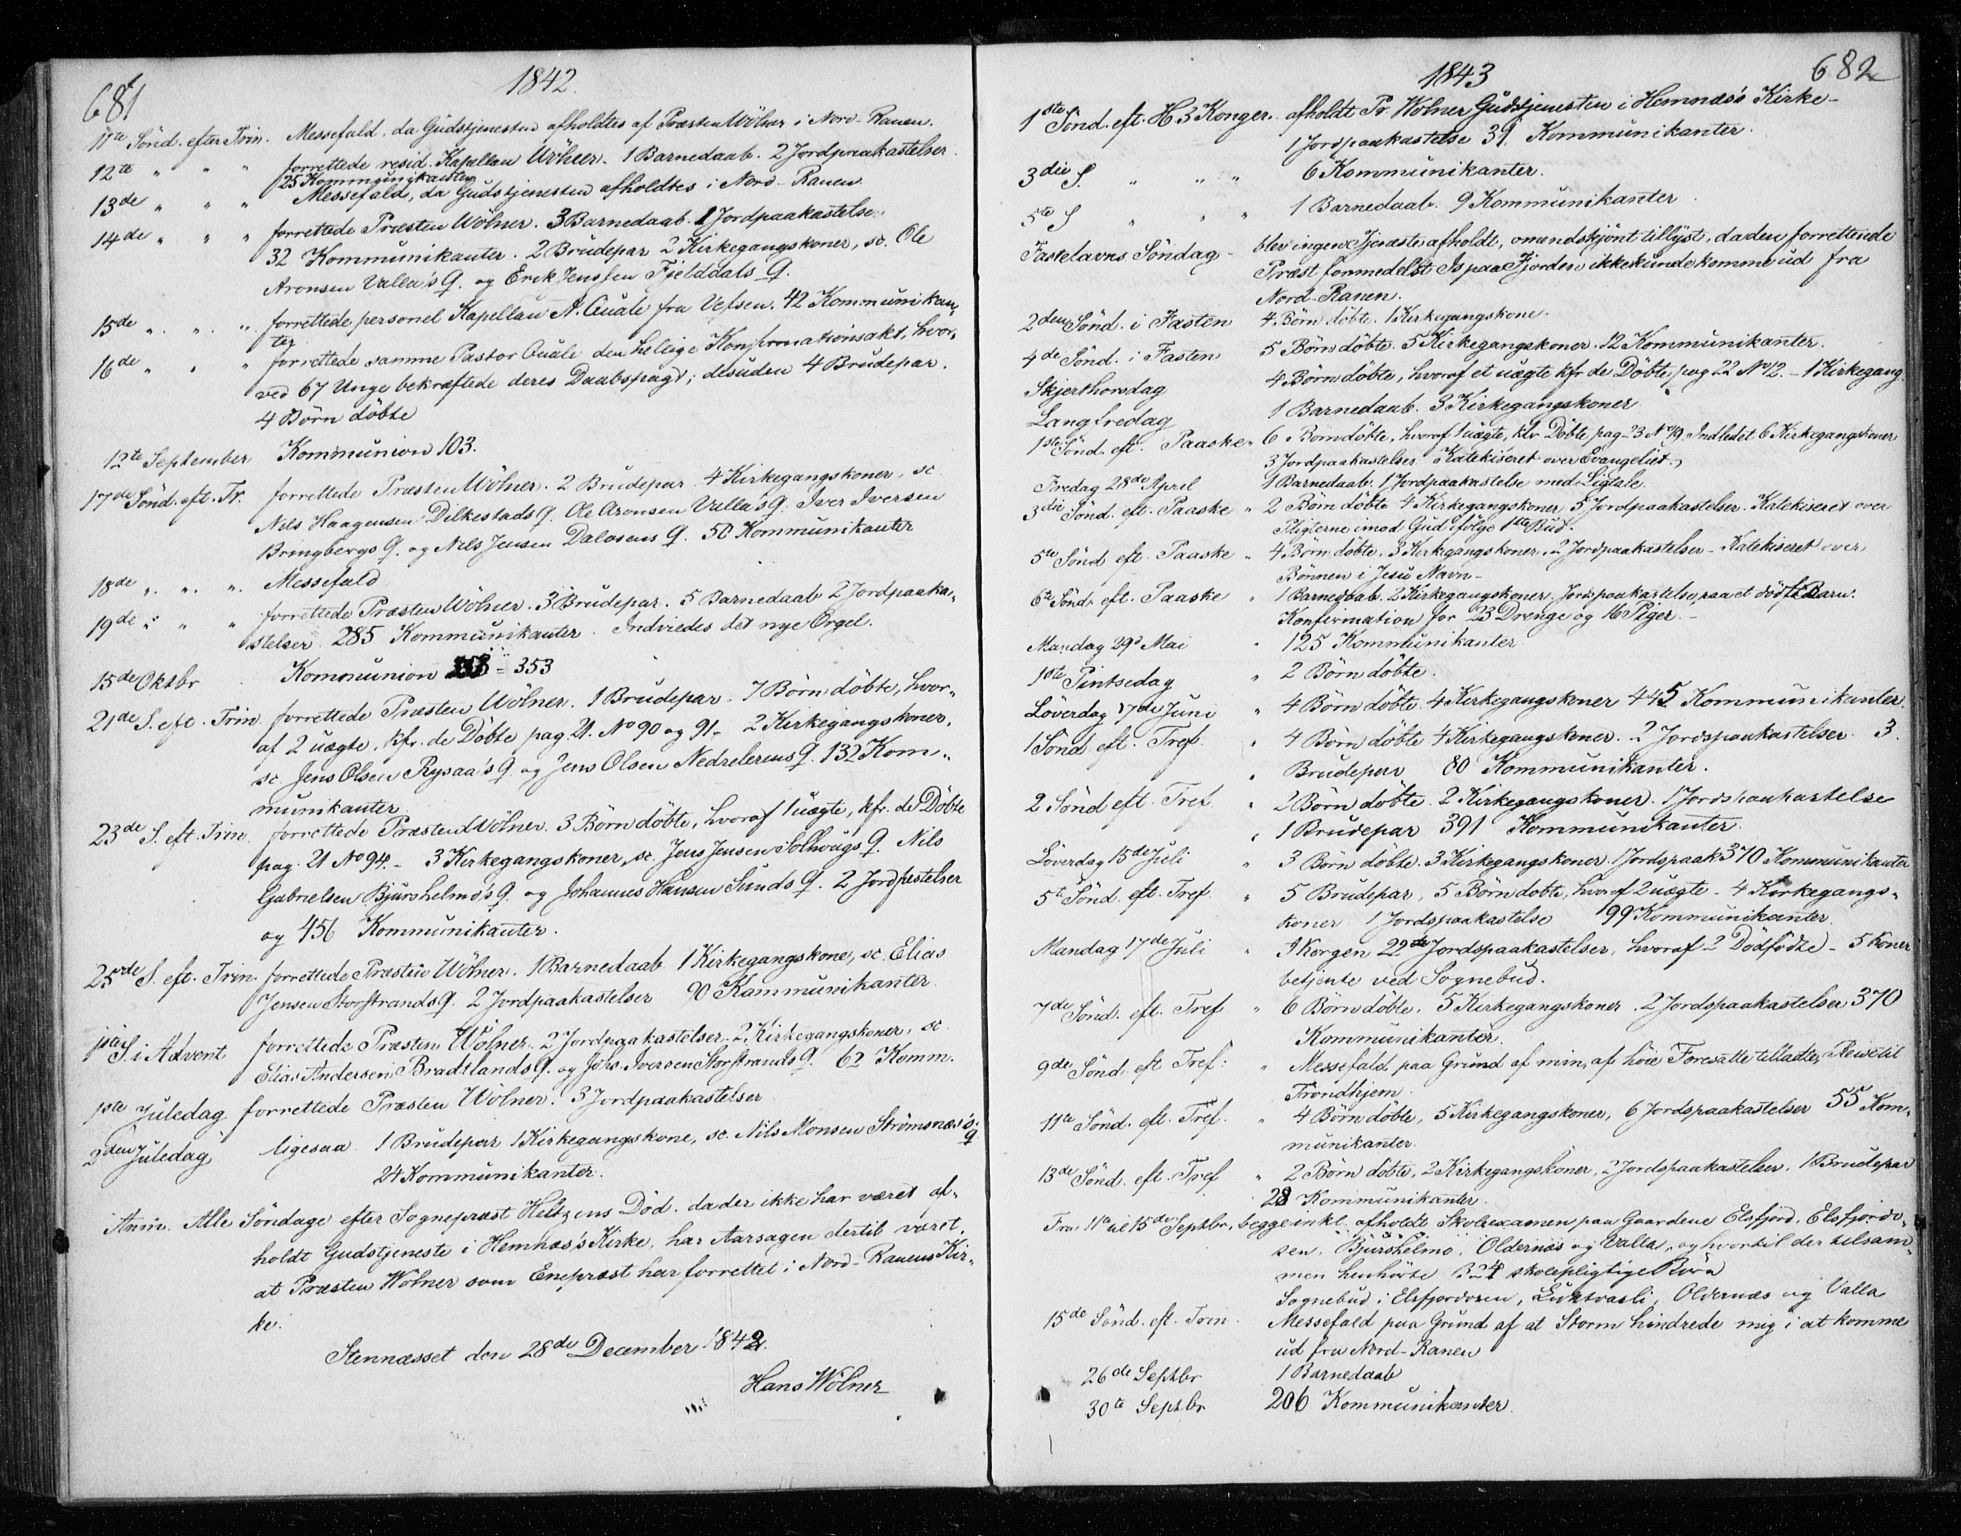 681
1842.
11te Sönd. efter Trin. Messefald, da Gudstjenesten afholdtes af Præsten Wölner i Nord-Ranen.
12te " " " forrettede resid. Kapellan Wölner. 1 Barnedaab. 2 Jordpaakastelser.
25 Kommunikanter
13de " " " Messefald, da Gudstjenesten afholdtes i Nord-Ranen
14de " " " forrettede Præsten Wölner. 3 Barnedaab. 1 Jordpaakastelse.
32 Kommunikanter. 2 Brudepar 2 Kirkegangskoner, sc. Ole
Aronsen Valla's Q. og Erik Jenssen Fjelddals Q.
15de " " " forrettede personel Kapellan N. Quale fra Vefsen. 42 Kommunikan-
ter
16de " " " forrettede samme Pastor Quale den hellige Konfirmationsakt, hvor-
ved 67 Unge bekræftede deres Daabspagt; desuden 4 Brudepar.
4 Börn döbte
12te September Kommunion 103.
17de Sönd. eft. Tr. forrettede Præsten Wölner. 2 Brudepar. 4 Kirkegangskoner, sc.
Nils Haagensen Dilkestads Q. Ole Aronsen Valla's Q. Iver Iversen
Bringbergs Q. og Nils Jensen Dalosens Q. 50 Kommunikanter
18de " " " Messefald
19de " " " forrettede Præsten Wölner. 3 Brudepar. 5 Barnedaab 2 Jordpaaka-
stelser. 285 Kommunikanter. Indviedes det nye Orgel.
15de Oktbr Kommunion 353
21de S. eft. Trin. forrettede Præsten Wölner. 1 Brudepar. 7 Börn döbte, hvor-
af 2 uægte, kfr. de Döbte pag. 21. No 90 og 91. 2 Kirkegangskoner,
sc. Jens Olsen Rysaa's Q. og Jens Olsen Nedrelerens Q. 132 Kom-
munikanter
23de S. eft. Trin. forrettede Præsten Wölner. 3 Börn döbte, hvoraf 1 uægte, kfr. de Döbte
pag. 21 No 94. 3 Kirkegangskoner, sc. Jens Jensen Solhougs Q. Nils
Gabrielsen Bjurshelmo's Q. og Johannes Hansen Sunds Q. 2 Jordpastelser
og 456 Kommunikanter.
25de S. eft. Trin. forrettede Præsten Wölner. 1 Barnedaab 1 Kirkegangskone, sc. Elias
Jensen Storstrands Q. 2 Jordpaakastelser 90 Kommunikanter.
1ste S. i Advent forrettede Præsten Wölner. 2 Jordpaakastelser. 2 Kirkegangskoner, sc.
Elias Andersen Bradtlands Q. og Johs. Iversen Storstrands Q. 62 Komm.
1ste Juledag forrettede Præsten Wölner. 3 Jordpaakastelser
2den Juledag ligesaa 1 Brudepar 1 Kirkegangskone, sc. Nils Monsen Strömsnæs's Q.
24 Kommunikanter.
Anm. Alle Söndage efter Sognepræst Heltzens Död, da der ikke har været af-
holdt Gudstjeneste i Hemnæs's Kirke, har Aarsagen dertil været,
at Præsten Wölner som Enepræst har forrettet i Nord-Ranens Kir-
ke.
Stennæsset den 28de December 1842.
Hans Wölner
682
1843
1ste Sönd. eft. H 3 Konger. afholdt Pr. Wölner Gudstjenesten i Hemnæs's Kirke-
1 Jordpaakastelse 39 Kommunikanter.
3die S. " " " 6 Kommunikanter.
5te S " " " 1 Barnedaab. 9 Kommunikanter
Fastelavns Söndag- blev ingen Tjeneste afholdt, omendskjönt tillyst, da den forrettende
Præst formedelst Is paa Fjorden ikke kunde komme ud fra
Nord-Ranen.
2den Sönd. i Fasten 4 Börn döbte. 1 Kirkegangskone.
4de Sönd. i Fasten 5 Börn döbte. 5 Kirkegangskoner. 12 Kommunikanter.
Skjerthorsdag 4 Börn döbte, hvoraf et uægte kfr. de Döbte, pag 22 No 12. - 1 Kirkegang.
Langfredag 1 Barnedaab. 3 Kirkegangskoner
1ste Sönd. eft. Paaske 6 Börn döbte, hvoraf 1 uægte, kfr Döbte pag 23 No 19. Indledet 6 Kirkegangskoner
3 Jordpaakastelser. Katekiseret over Evangeliet.
Fredag 28de April 1 Barnedaab. 1 Jordpaakastelse med Ligtale.
3die Sönd. eft. Paaske " 2 Börn döbte 4 Kirkegangskoner. 5 Jordpaakastelser. Katekiseret over
Pligterne imod Gud ifölge 1ste Bud.
5te Sönd eft. Paaske " 4 Börn döbte. 3 Kirkegangskoner. 2 Jordpaakastelser - Katekiseret over
Bönnen i Jesu Navn-
6te Sönd. eft. Paaske " 1 Barnedaab. 2 Kirkegangskoner. Jordspaakastelse, paa et dödf. Barn.
Konfirmation for 23 Drenge og 16 Piger. -
Mandag 29d Mai " 125 Kommunikanter
1ste Pintsedag " 2 Börn döbte.
Löverdag 17de Juni " 4 Börn döbte. 4 Kirkegangskoner 445 Kommunikanter.
1 Sönd eft. Tref. " 4 Börn döbte 4 Kirkegangskoner. 2 Jordspaakastelser. 3.
" Brudepar 80 Kommunikanter.
2 Sönd eft. Tref. " 2 Börn döbte. 2 Kirkegangskoner. 1 Jordspaakastelse
" 1 Brudepar 391 Kommunikanter.
Löverdag 15de Juli " 3 Börn döbte. 3 Kirkegangskoner. 1 Jordspaak. 370 Kommunikanter
5te Sönd. eft. Tref. " 5 Brudepar, 5 Börn döbte, hvoraf 2 uægte. 4 Kirkegangs-
koner 1 Jordspaakastelse 199 Kommunikanter.
Mandag 17de Juli " I Korgen 22 Jordspaakastelser, hvoraf 2 Dödfödte - 5 Koner
betjente ved Sognebud.
7de Sönd. eft. Tref " 6 Börn döbte, 5 Kirkegangskoner. 2 Jordspaakastelser 370
Kommunikanter.
9de Sönd. eft Tref: " Messefald paa Grund af min, af höie Foresatte tilladte, Reise til
Trondhjem.
11te Sönd. eft. Tref. " 4 Börn döbte, 5 Kirkegangskoner, 6 Jordspaakastelser 55 Kom-
munikanter.
13de Sönd. eft. Tref " 2 Börn döbte, 2 Kirkegangskoner, 2 Jordspaakastelser. 1 Brudepar
28 Kommunikanter.
Fra 11te til 15de Septbr, begge inkl. afholdt Skoleexamen paa Gaardene Elsfjord, Elsfjordo-
sen, Bjurshelmo, Oldernæs og Valla, og hvortil der tilsam-
men henhörte 324 skolepligtige Börn
Sognebud i Elsfjordosen, Luktvasli, Oldernæs og Valla
15de Sönd. eft. Trin. Messefald paa Grund af at Storm hindrede mig i at komme
ud fra Nord-Ranen
26de Septbr 1 Barnedaab
30te Septbr 206 Kommunikanter.